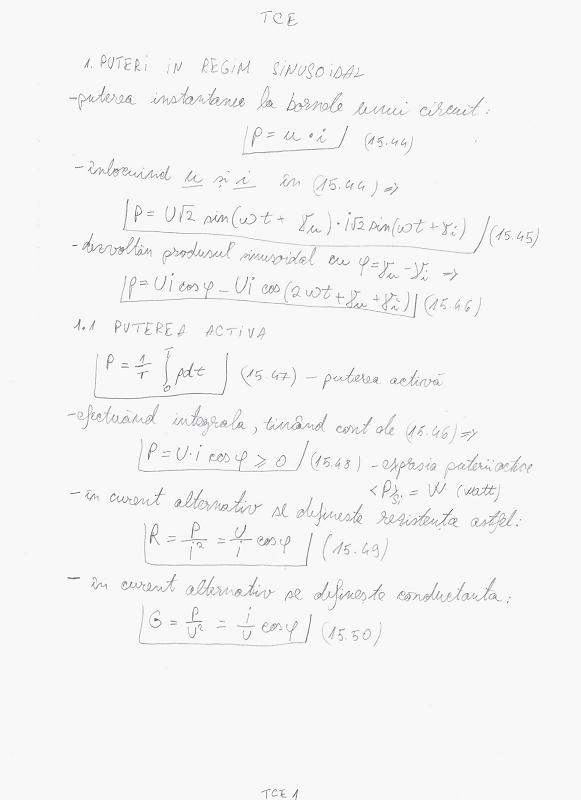 TCE
1. PUTERI IN REGIM SINUSOIDAL
-puterea instantanee la bornele unui circuit:
P = u · i (15.44)
- înlocuind u și i în (15.44) =>
P = U√2 sin(ωt + γu) · i√2 sin(ωt + γi) (15.45)
- dezvoltăn produsul inusoidal cu φ=γu-γi =>
P = Ui cosφ - Ui cos(2ωt + γu + γi) (15.46)
1.1 PUTEREA ACTIVA
P = 1/T ∫₀ᵀ pdt (15.47) - puterea activă
-efectuând integrala, tinând cont de (15.46) =>
P = U·i cosφ ⩾ 0 (15.48) - expresia puterii active
<P>Si = W (watt)
- în curent alternativ se definește rezistența astfel:
R = P/i² = U/i cosφ (15.49)
- în curent alternativ se definește conductanta:
G = P/U² = i/U cosφ (15.50)
TCE 1